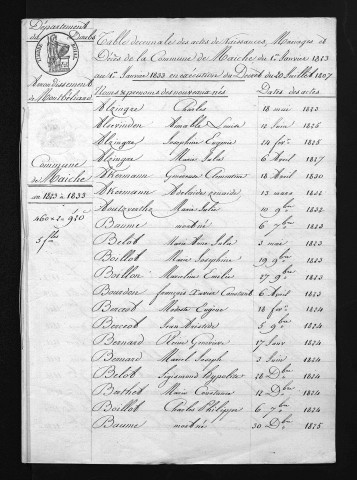 Département
du Doubs
Arrondissement
de Montbéliard
Commune
de Maiche
an 1823 à 1833
460 = 2 = 920
Table décennale des actes de Naissances, Mariages et
Décès de la Commune de Maiche du 1er Janvier 1823
au 1er Janvier 1833 en exécution du Décret du 20 Juillet 1807.
Noms & prénoms des nouveaux nés Dates des actes
Alzingre Charles 18 mai 1823
Amable Louise 12 Juin 1825
Alzingre Joséphine Eugénie 24 fév. 1825
Alzingre Marie Julie 6 Avril 1827
Akermann Clémentine 18 Avril 1830
Akermann Adelaïde 13 mars 1832
Marie Julie 10 9bre 1832
Baume mort né 6 Janv. 1823
Belot Marie Anne Julie 3 mai 1823
Boillot Marie Joséphine 19 9bre 1823
Boillon Marceline Emélie 27 9bre 1823
Bourdon françois Xavier Constant 6 Avril 1823
Berceot Modeste Eugène 18 fév. 1824
Berceot Jean Aristide 5 9bre 1824
Bernard Reine Geneviève 17 Janv 1824
Bernard Marcel Joseph 3 Juin 1824
Belot Sigismond Hypolite 28 Dbre 1824
Barthet Marie Constance 12 Dbre 1824
Boillot Charles Philippe 6 7bre 1824
Baume mort né 30 Dbre 1825